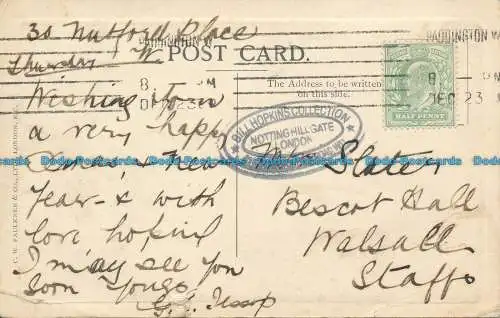 30 Nutford Place
Thursday W.
PADDINGTON W
8 PM
DEC 23
PADDINGTON W
8 PM
DEC 23
POST CARD.
The Address to be written
on this side.
HALF PENNY
BILL HOPKINS COLLECTION
NOTTING HILL GATE
LONDON
Wishing you
a very happy
Xmas & New
Year & with
love hoping
I may see you
soon Yours
G. S. Jessop
Slater
Bescot Hall
Walsall
Staffs
Bodo-Postcards
C. W. FAULKNER & CO., LTD., LONDON, E.C.